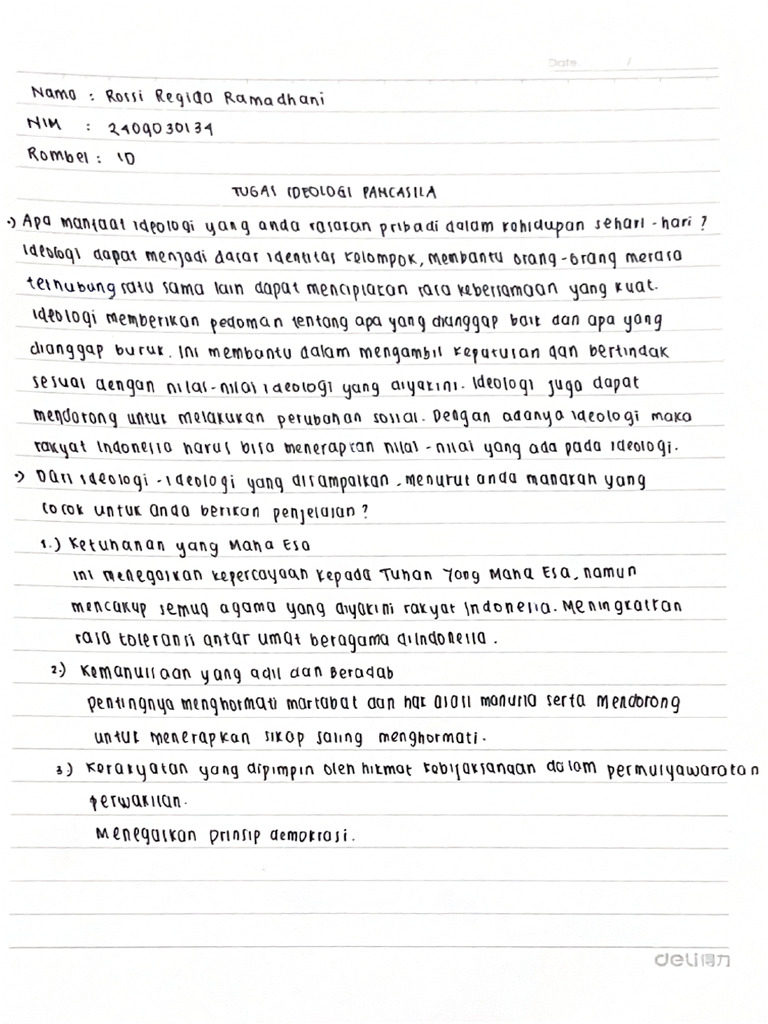 Date /
Nama : Rossi Regida Ramadhani
NIM : 2409030134
Rombel : 1D
TUGAS IDEOLOGI PANCASILA
•) Apa manfaat ideologi yang anda rasakan pribadi dalam kehidupan sehari-hari ?
Ideologi dapat menjadi dasar identitas kelompok, membantu orang-orang merasa
terhubung satu sama lain dapat menciptakan rasa kebersamaan yang kuat.
Ideologi memberikan pedoman tentang apa yang dianggap baik dan apa yang
dianggap buruk. Ini membantu dalam mengambil keputusan dan bertindak
sesuai dengan nilai-nilai ideologi yang diyakini. Ideologi juga dapat
mendorong untuk melakukan perubahan sosial. Dengan adanya ideologi maka
rakyat Indonesia harus bisa menerapkan nilai-nilai yang ada pada ideologi.
•) Dari ideologi-ideologi yang disampaikan, menurut anda manakah yang
cocok untuk anda berikan penjelasan ?
1.) Ketuhanan yang Maha Esa
Ini menegaskan kepercayaan kepada Tuhan Yang Maha Esa, namun
mencakup semua agama yang diyakini rakyat Indonesia. Meningkatkan
rasa toleransi antar umat beragama diIndonesia.
2.) Kemanusiaan yang adil dan Beradab
Pentingnya menghormati martabat dan hak asasi manusia serta Mendorong
untuk menerapkan sikap saling menghormati.
3.) Kerakyatan yang dipimpin oleh hikmat kebijaksanaan dalam permusyawaratan
perwakilan.
Menegaskan prinsip demokrasi.
deli得力